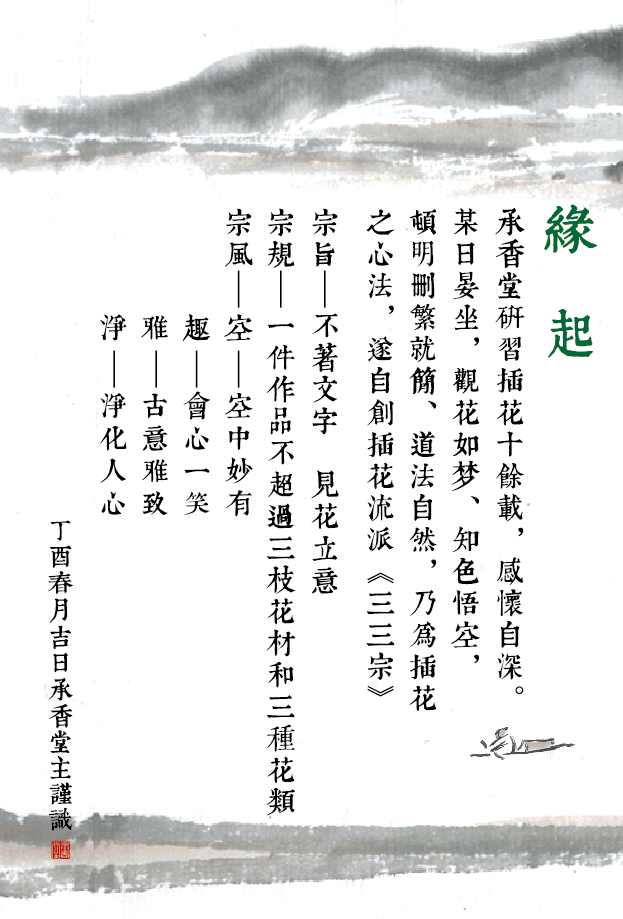 緣起
承香堂研習插花十餘載，感懷自深。
某日晏坐，觀花如梦、知色悟空，
頓明刪繁就簡、道法自然，乃爲插花
之心法，遂自創插花流派《三三宗》
宗旨—不著文字 見花立意
宗規—一件作品不超過三枝花材和三種花類
宗風—空—空中妙有
趣—會心一笑
雅—古意雅致
淨—淨化人心
丁酉春月吉日承香堂主謹識